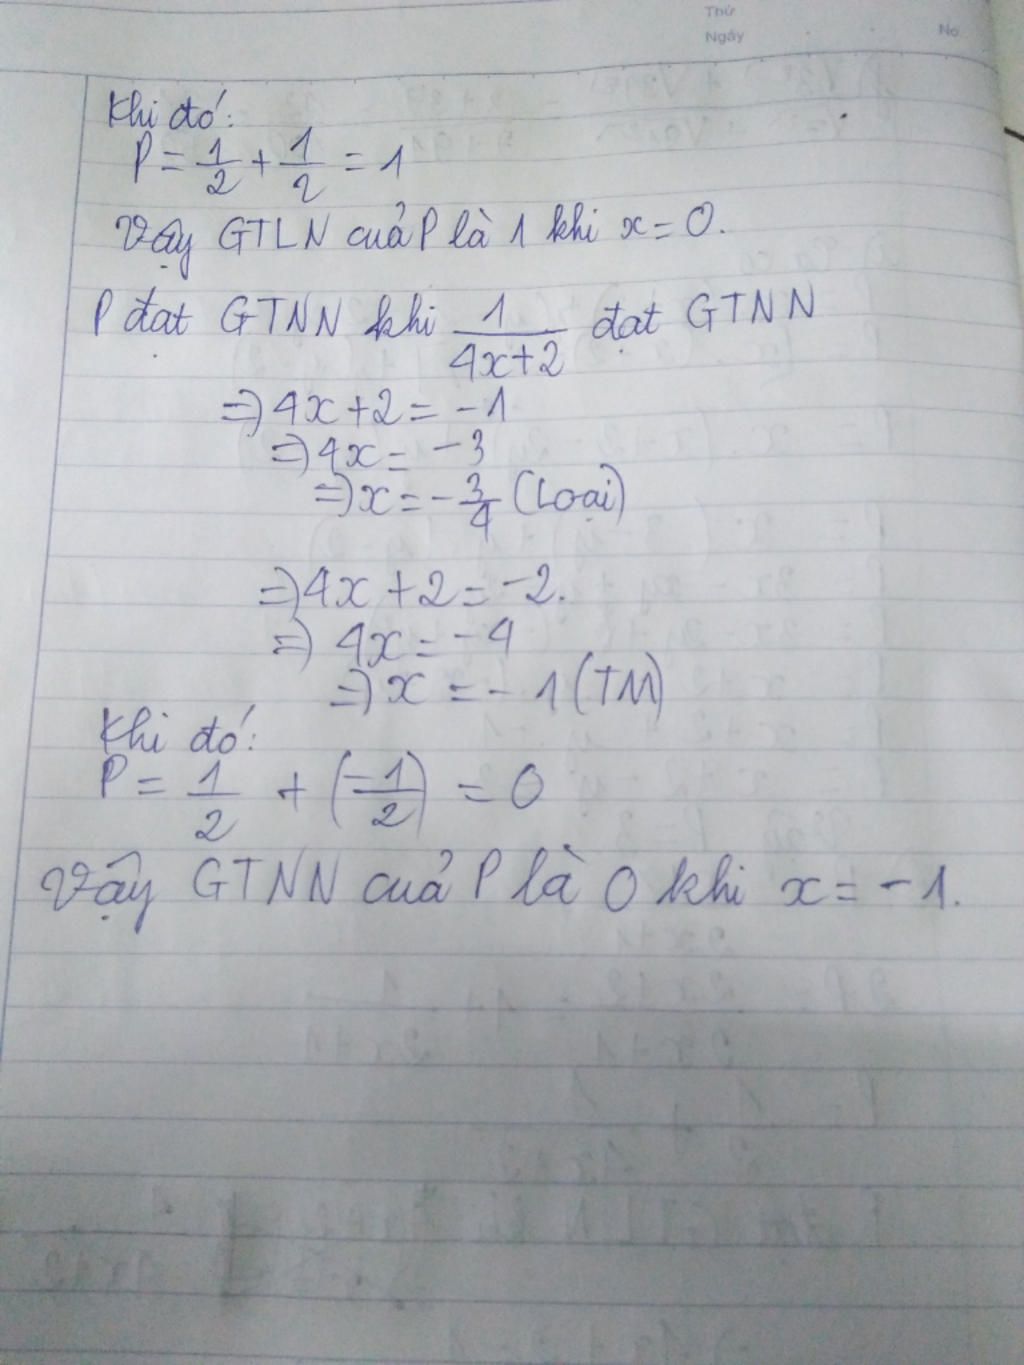 Thứ
Ngày
No.
Khi đó:
P = 1/2 + 1/2 = 1
Vậy GTLN cuả P là 1 khi x = 0.
P đạt GTNN khi 1/(4x+2) đạt GTNN
=> 4x + 2 = -1
=> 4x = -3
=> x = -3/4 (Loại)
=> 4x + 2 = -2.
=> 4x = -4
=> x = -1 (TM)
Khi đó:
P = 1/2 + (-1/2) = 0
Vậy GTNN cuả P là 0 khi x = -1.